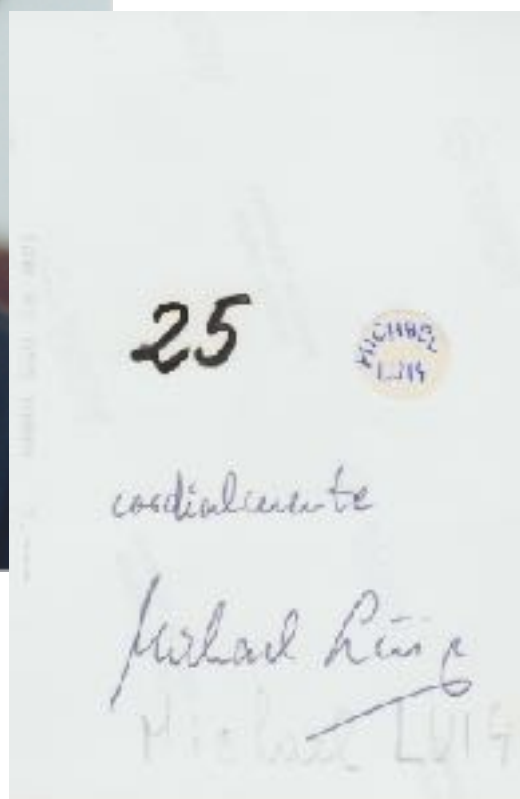 25
MICHAEL
LUIG
cordialmente
Michael Luig
Michael LUIG